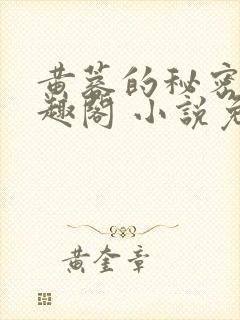 黄蓉的秘密
趣阁 小说免
黄奎章